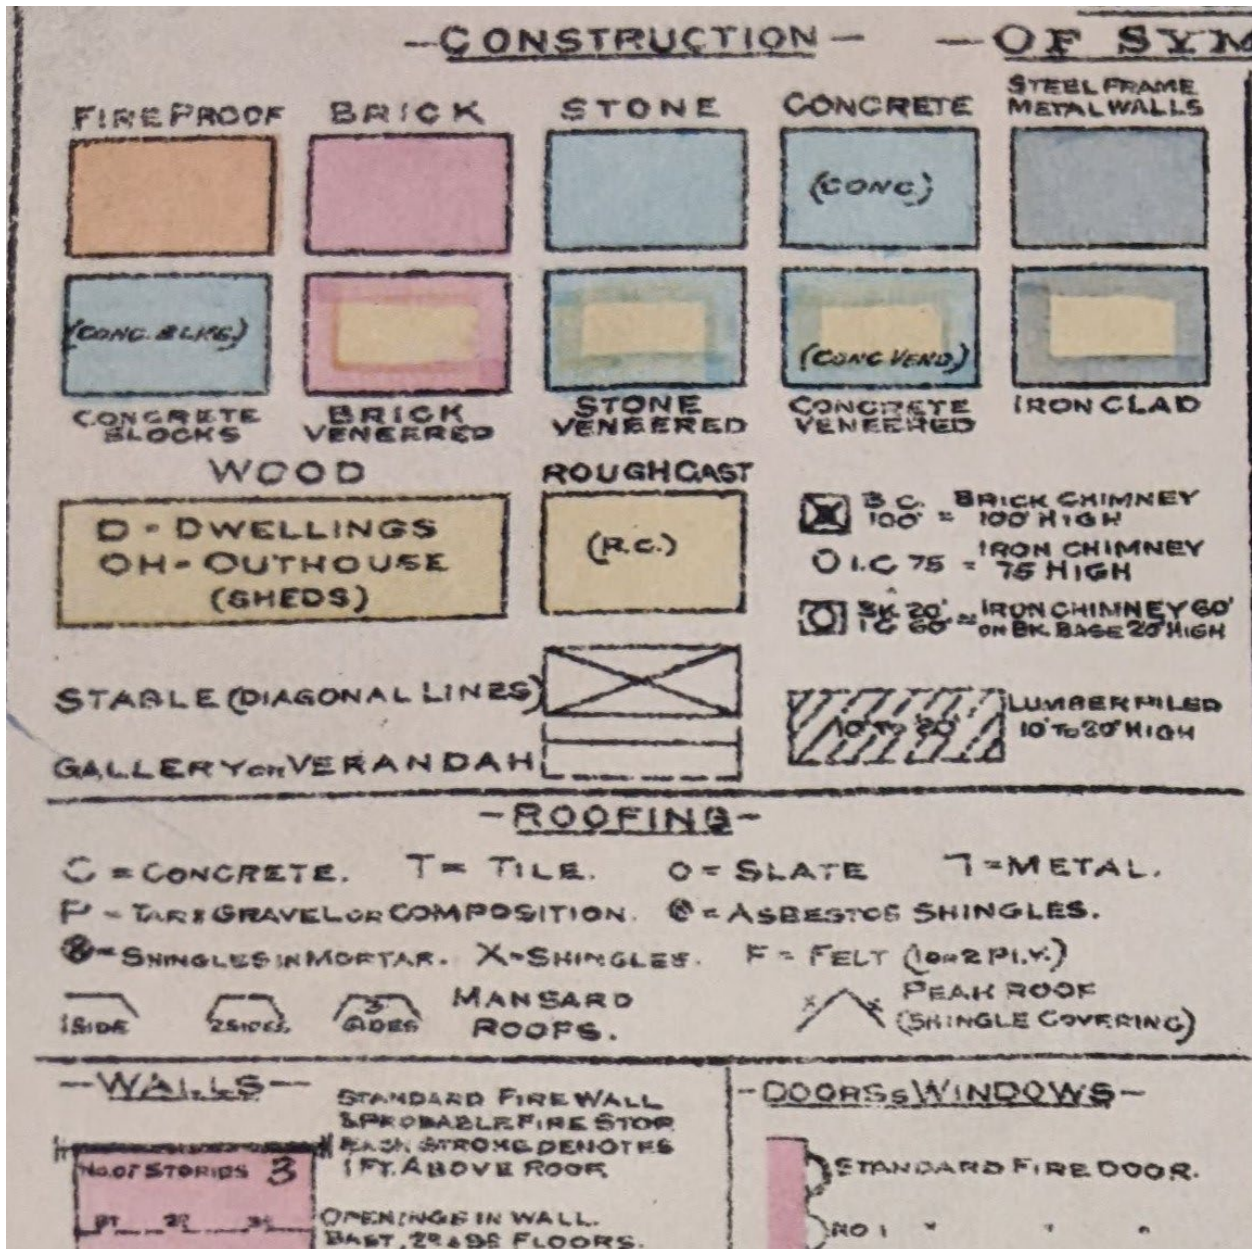 -CONSTRUCTION-
-OF SYM
FIREPROOF
BRICK
STONE
CONCRETE
STEEL FRAME
METAL WALLS
(CONC.)
(CONC. BLKS.)
(CONC VEND.)
CONCRETE
BLOCKS
BRICK
VENEERED
STONE
VENEERED
CONCRETE
VENEERED
IRON CLAD
WOOD
D - DWELLINGS
OH - OUTHOUSE
(SHEDS)
ROUGHCAST
(R.C.)
B.C. BRICK CHIMNEY
100' = 100' HIGH
O I.C 75 = IRON CHIMNEY
75 HIGH
BK 20' = IRON CHIMNEY 60'
I C 60' ON BK. BASE 20' HIGH
STABLE (DIAGONAL LINES)
10' TO 20'
LUMBER PILED
10' TO 20' HIGH
GALLERY OR VERANDAH
-ROOFING-
C = CONCRETE. T = TILE. O = SLATE ⅂ = METAL.
P - TAR & GRAVEL OR COMPOSITION. = ASBESTOS SHINGLES.
= SHINGLES IN MORTAR. X - SHINGLES. F = FELT (1 OR 2 PLY.)
1 SIDE
2 SIDES
3
SIDES
MANSARD
ROOFS.
PEAK ROOF
(SHINGLE COVERING)
-WALLS-
STANDARD FIRE WALL
& PROBABLE FIRE STOP
EACH STROKE DENOTES
1 FT. ABOVE ROOF
NO. OF STORIES 3
OPENINGS IN WALL.
BAST, 2ND & 3RD FLOORS.
-DOORS & WINDOWS-
STANDARD FIRE DOOR.
NO 1 " " "